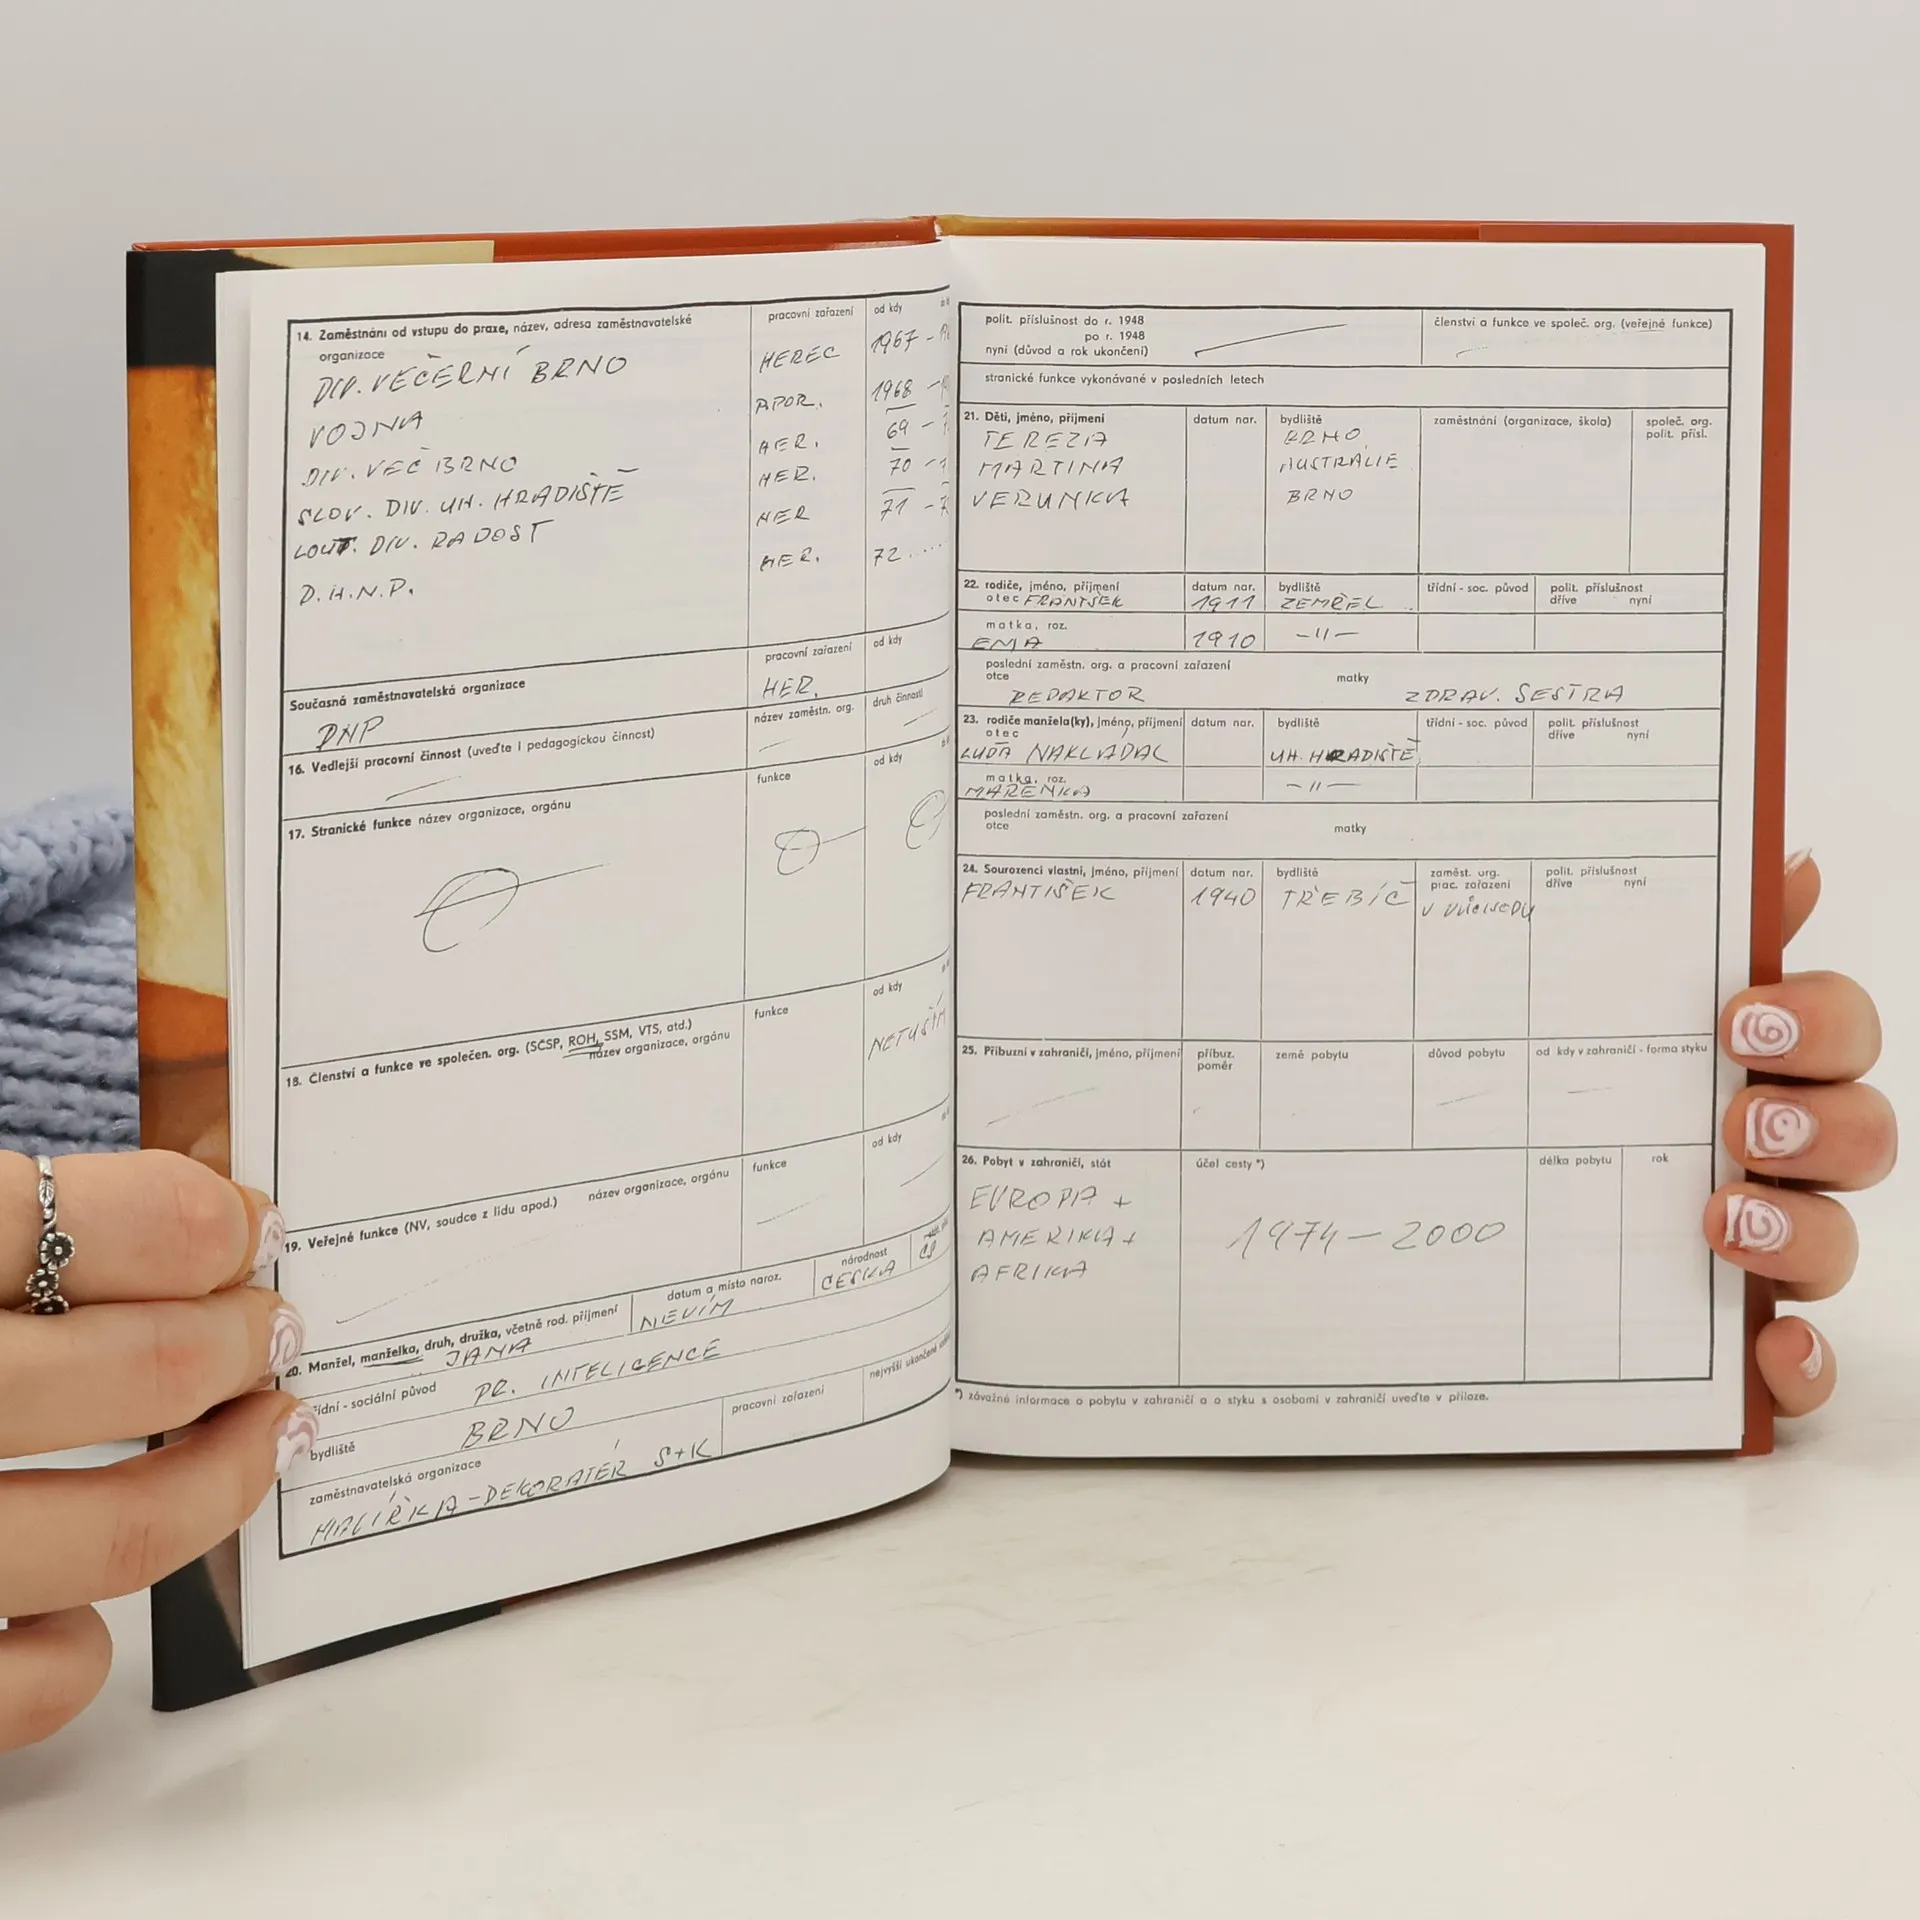 14. Zaměstnání od vstupu do praxe, název, adresa zaměstnavatelské
organizace
pracovní zařazení
od kdy
DIV. VEČERNÍ BRNO HEREC 1967 -
VOJNA APOR. 1968 -
DIV. VEČ BRNO HER. 69 -
SLOV. DIV. UH. HRADIŠTĚ HER. 70 -
LOUT. DIV. RADOST HER 71 -
D.H.N.P. HER. 72 ....
Současná zaměstnavatelská organizace pracovní zařazení od kdy
DHP HER.
16. Vedlejší pracovní činnost (uveďte i pedagogickou činnost) název zaměstn. org. druh činnosti
17. Stranické funkce název organizace, orgánu funkce od kdy
18. Členství a funkce ve společen. org. (SČSP, ROH, SSM, VTS, atd.) funkce od kdy
název organizace, orgánu
NETUŠÍM
19. Veřejné funkce (NV, soudce z lidu apod.) název organizace, orgánu funkce od kdy
20. Manžel, manželka, druh, družka, včetně rod. příjmení datum a místo naroz. národnost
JANA NEVÍM ČESKÁ
třídní - sociální původ PR. INTELIGENCE
bydliště BRNO
zaměstnavatelská organizace pracovní zařazení nejvyšší ukončené
MALÍŘKA - DEKORATÉR S+K
polit. příslušnost do r. 1948 členství a funkce ve společ. org. (veřejné funkce)
po r. 1948
nyní (důvod a rok ukončení)
stranické funkce vykonávané v posledních letech
21. Děti, jméno, příjmení datum nar. bydliště zaměstnání (organizace, škola) společ. org.
polit. přísl.
TEREZIA BRNO
MARTINA AUSTRÁLIE
VERUNKA BRNO
22. rodiče, jméno, příjmení datum nar. bydliště třídní - soc. původ polit. příslušnost
dříve nyní
otec FRANTIŠEK 1911 ZEMŘEL
matka, roz.
EMA 1910 - 11 -
poslední zaměstn. org. a pracovní zařazení
otce REDAKTOR matky ZDRAV. SESTRA
23. rodiče manžela(ky), jméno, příjmení datum nar. bydliště třídní - soc. původ polit. příslušnost
otec dříve nyní
LUĎA NAKLÁDAL UH. HRADIŠTĚ
matka, roz.
MAŘENKA - 11 -
poslední zaměstn. org. a pracovní zařazení
otce matky
24. Sourozenci vlastní, jméno, příjmení datum nar. bydliště zaměst. org. polit. příslušnost
prac. zařazení dříve nyní
FRANTIŠEK 1940 TŘEBÍČ V
25. Příbuzní v zahraničí, jméno, příjmení příbuz. země pobytu důvod pobytu od kdy v zahraničí - forma styku
poměr
26. Pobyt v zahraničí, stát účel cesty *) délka pobytu rok
EVROPA +
AMERIKA + 1974 - 2000
AFRIKA
*) závažné informace o pobytu v zahraničí a o styku s osobami v zahraničí uveďte v příloze.